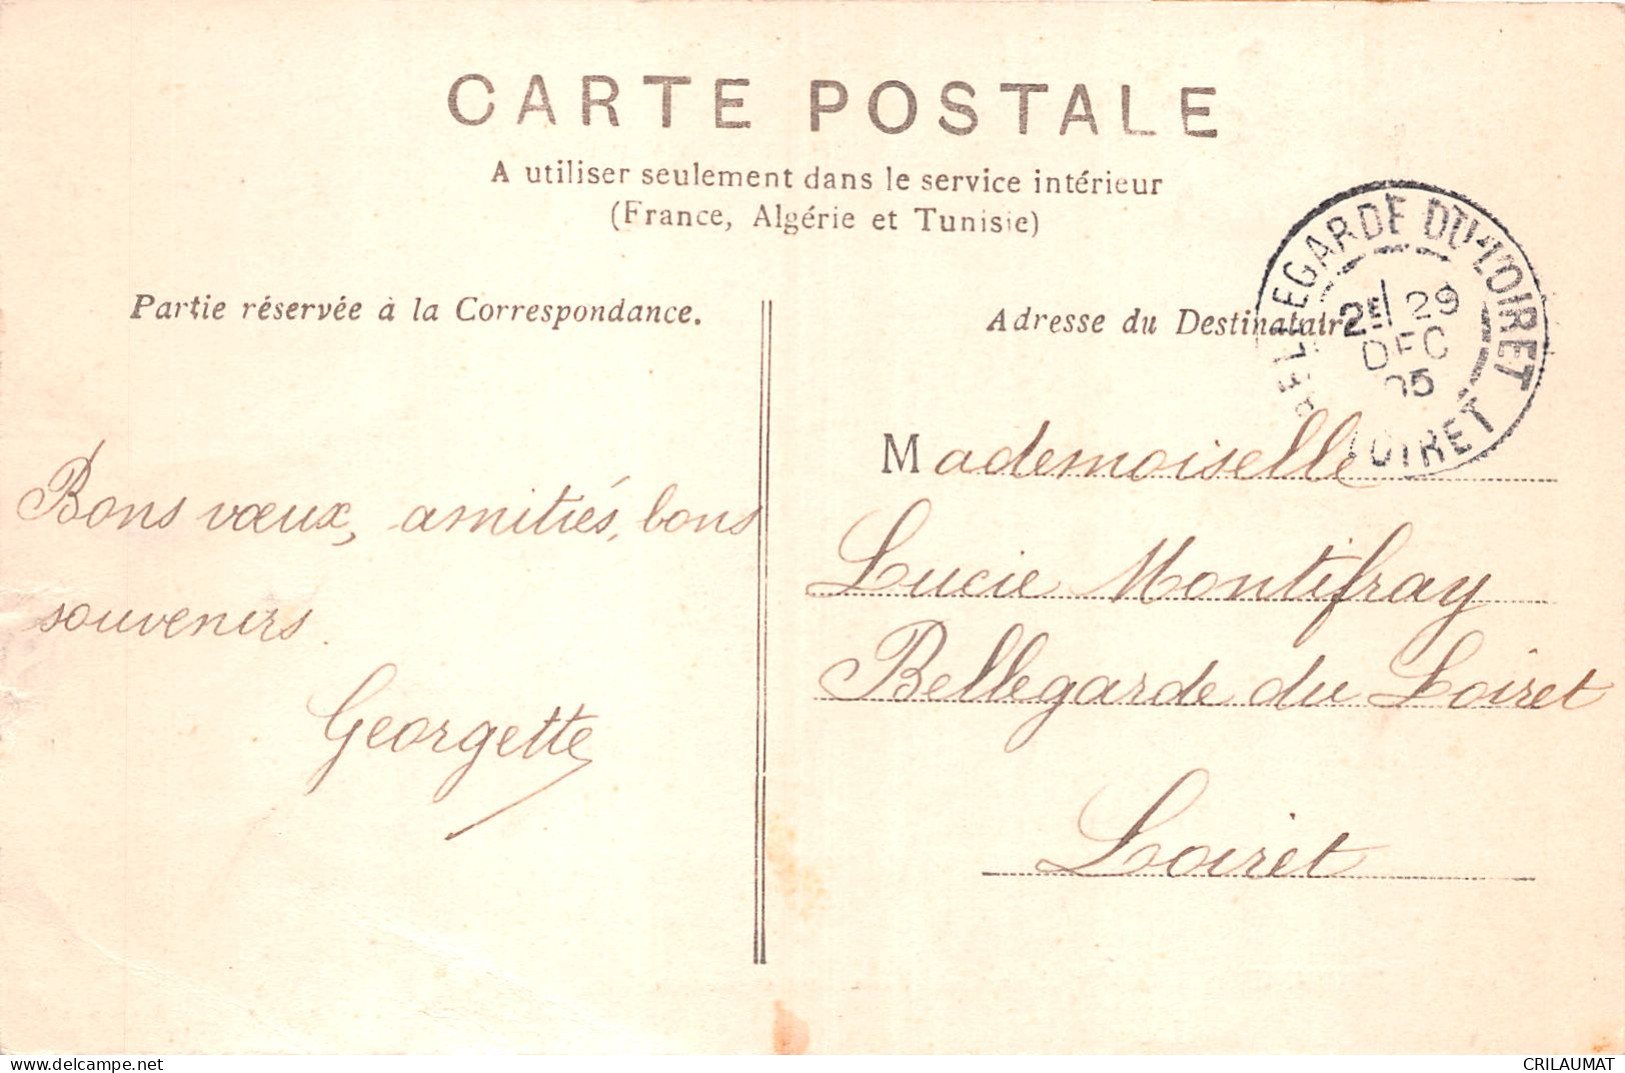 CARTE POSTALE
A utiliser seulement dans le service intérieur
(France, Algérie et Tunisie)
Partie réservée à la Correspondance.
Adresse du Destinataire
BELLEGARDE DU LOIRET
2E 29
DEC
05
LOIRET
Bons vœux, amitiés, bons
souvenirs.
Georgette
Mademoiselle
Lucie Montifray
Bellegarde du Loiret
Loiret
delcampe.net
CRILAUMAT